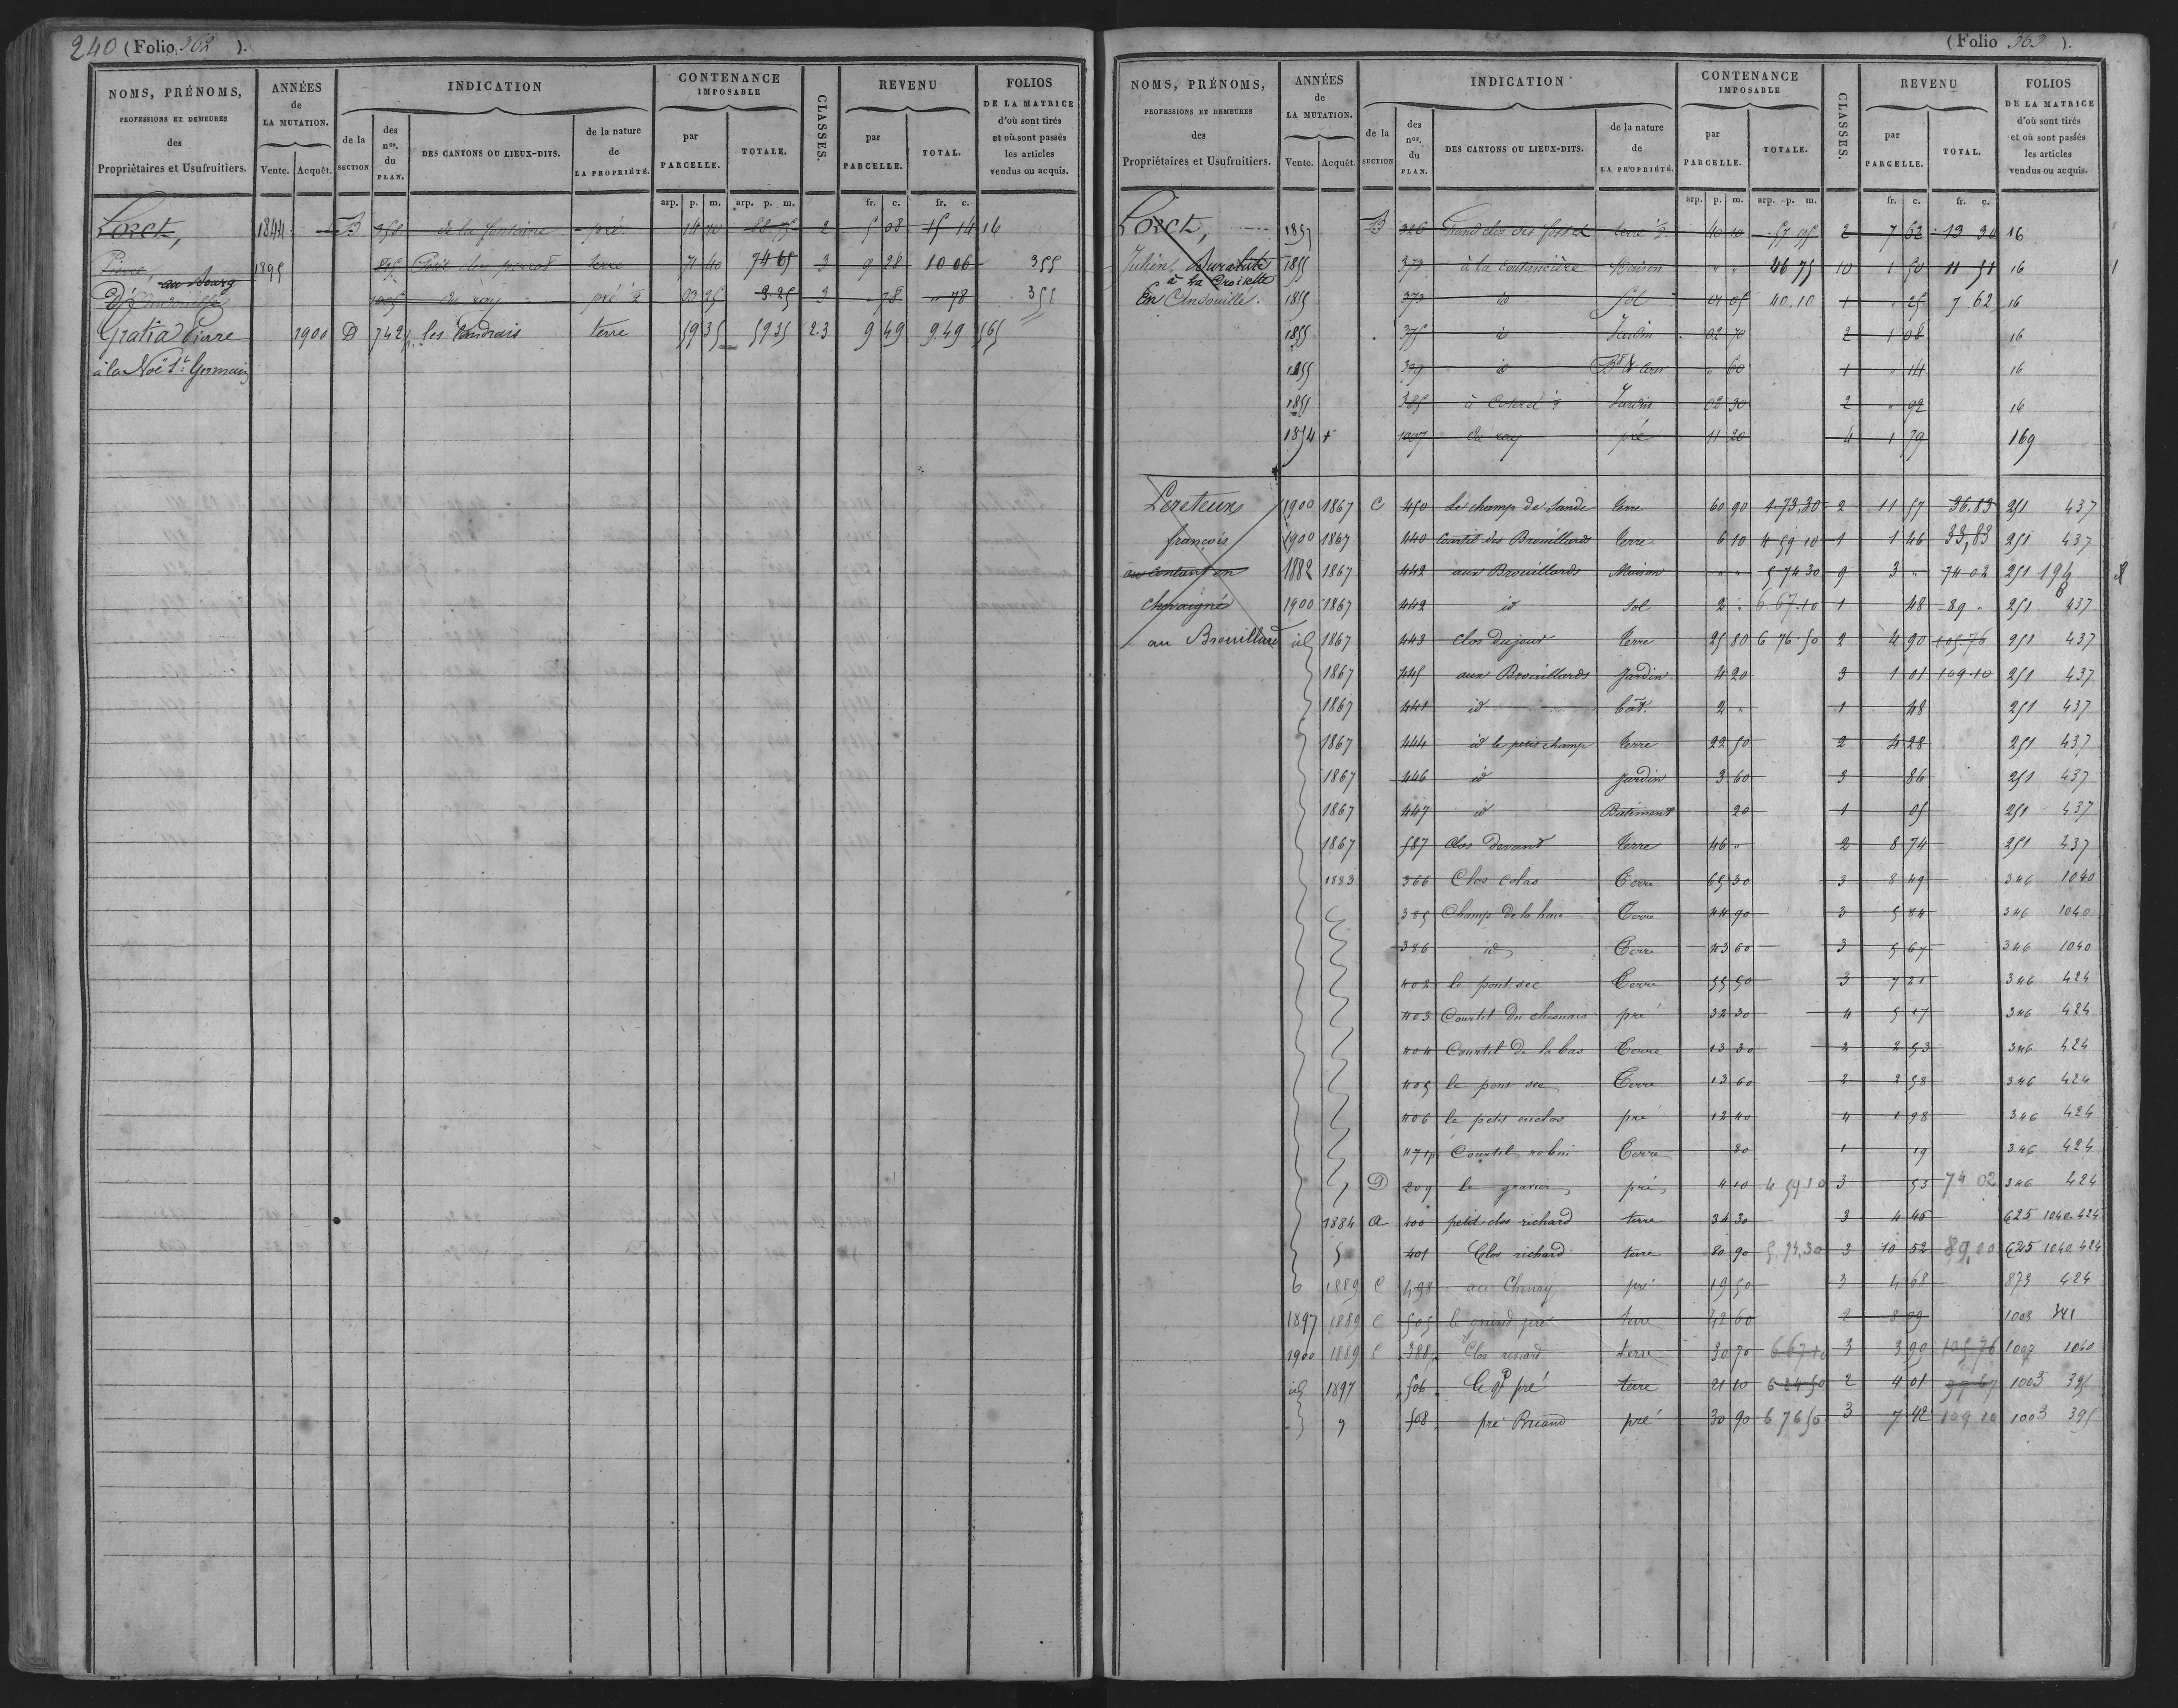 240 (Folio 362 ).
NOMS, PRÉNOMS,
PROFESSIONS ET DEMEURES
des
Propriétaires et Usufruitiers.
ANNÉES
de
LA MUTATION.
Vente. Acquêt.
INDICATION
de la
SECTION
des
nos.
du
PLAN.
DES CANTONS OU LIEUX-DITS.
de la nature
de
LA PROPRIÉTÉ.
CONTENANCE
IMPOSABLE
par
PARCELLE.
TOTALE.
CLASSES.
REVENU
par
PARCELLE.
TOTAL.
FOLIOS
DE LA MATRICE
d'où sont tirés
et où sont passés
les articles
vendus ou acquis.
arp. p. m. arp. p. m. fr. c. fr. c.
Loret, 1844 B de la fontaine pré 14 40 2 5 08 15 14 16
Pierre, 1895 terre 71 40 74 65 3 9 28 10 06 355
au Bourg
du roy pré 03 25 3.25 3 78 " 78 355
Gratia Pierre 1900 D 742 les terre 59 35 59 35 2.3 9 49 9.49 565
à la Noë St Germain
(Folio 363 ).
NOMS, PRÉNOMS,
PROFESSIONS ET DEMEURES
des
Propriétaires et Usufruitiers.
ANNÉES
de
LA MUTATION.
Vente. Acquêt.
INDICATION
de la
SECTION
des
nos.
du
PLAN.
DES CANTONS OU LIEUX-DITS.
de la nature
de
LA PROPRIÉTÉ.
CONTENANCE
IMPOSABLE
par
PARCELLE.
TOTALE.
CLASSES.
REVENU
par
PARCELLE.
TOTAL.
FOLIOS
DE LA MATRICE
d'où sont tirés
et où sont passés
les articles
vendus ou acquis.
arp. p. m. arp. p. m. fr. c. fr. c.
Loret, 1857 B 326 terre 40 10 2 7 62 16
Julien, 1855 373 à la Maison " " 46 75 10 1 50 11 51 16
à la Croisette
En Andouillé. 1855 373 id Sol 01 05 40.10 1 " 25 7 62 16
1855 375 id Jardin 02 70 2 1 08 16
1855 379 id " 60 1 " 14 16
1855 385 Jardin 02 30 2 " 92 16
1854 + 1007 du roy pré 11 20 4 1 79 169
Lereteux 1900 1867 C 450 Le champ de Lande terre 60 90 1.73.30 2 11 57 36.83 251 437
françois 1900 1867 440 Courtil des Brouillards terre 6 10 4 59 10 1 1 46 33,83 251 437
1882 1867 442 aux Brouillards Maison " " 5 74 30 9 3 " 74 02 251 194
1900 1867 442 id Sol 2 " 6 67.10 1 48 89 " 251 437
au Brouillard id 1867 443 clos dujour terre 25 80 6 76.50 2 4 90 105.76 251 437
1867 445 aux Brouillards Jardin 4 20 3 1 01 109.10 251 437
1867 441 id bât. 2 " 1 48 251 437
1867 444 id le petit champ terre 22 50 2 4 28 251 437
1867 446 id Jardin 3 60 3 86 251 437
1867 447 id Batiment 20 1 05 251 437
1867 587 clos devant terre 46 " 2 8 74 251 437
1883 366 Clos colas Terre 65 30 3 8 49 346 1040
385 Champ de la haie Terre 44 90 3 5 84 346 1040
386 id Terre 43 60 3 5 67 346 1040
402 le pont sec Terre 55 50 3 7 21 346 424
403 Courtil du chesnais pré 32 30 4 5 17 346 424
404 Courtil de la bas Terre 13 30 2 2 53 346 424
405 le pont sec Terre 13 60 2 2 58 346 424
406 le petit enclos pré 12 40 4 1 98 346 424
471p Courtil robin Terre 80 1 19 346 424
D 209 le gravier pré 4 10 4 59 10 3 53 74 02 346 424
1884 a 400 petit clos richard terre 34 30 3 4 46 625 1040-424
401 Clos richard terre 80 90 5.74.30 3 10 52 89.00 625 1040 424
1889 C 498 au Chenay pré 19 50 3 4 68 873 424
1897 1889 C 505 le grand pré terre 42 60 2 8 09 1003 341
1900 1889 C 388 Clos renard terre 30 70 6 67 10 3 3 99 105 76 1007 1040
id 1897 506 le gd pré terre 21 10 6 24 50 2 4 01 97 67 1003 395
" 508 pré Briand pré 30 90 6 76 50 3 7 42 109 10 1003 395